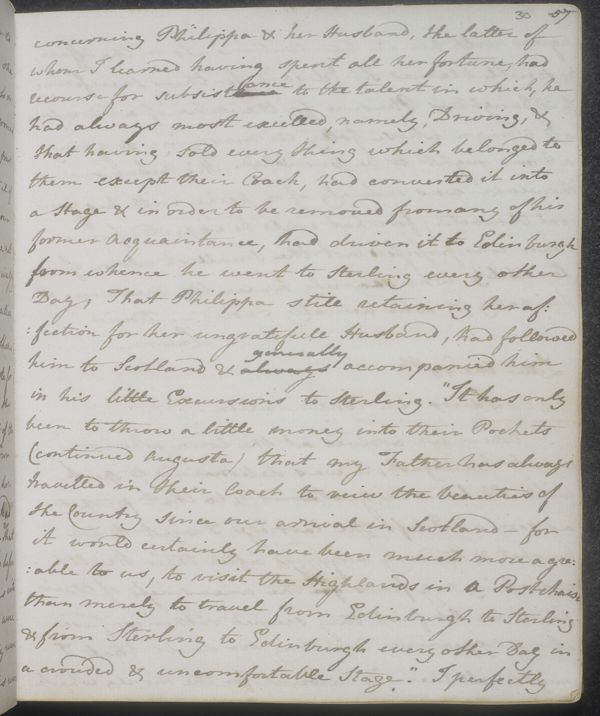 30 57
concerning Philippa & her Husband, the latter of
whom I learned having spent all her fortune, had
recourse for subsistance to the talent in which, he
had always most excelled, namely, Driving, &
that having sold every thing which belonged to
them except their Coach, had converted it into
a Stage & in order to be removed from any of his
former Acquaintance, had driven it to Edinburgh
from whence he went to Sterling every other
Day; That Philippa still retaining her af:
:fection for her ungratefull Husband, had followed
him to Scotland & generally accompanied him
in his little Excursions to Sterling. "It has only
been to throw a little money into their Pockets
(continued Augusta) that my Father has always
travelled in their Coach to veiw the beauties of
the Country since our arrival in Scotland – for
it would certainly have been much more agre:
:able to us, to visit the Highlands in a Postchaise
than merely to travel from Edinburgh to Sterling
& from Sterling to Edinburgh every other Day in
a crouded & uncomfortable Stage." I perfectly